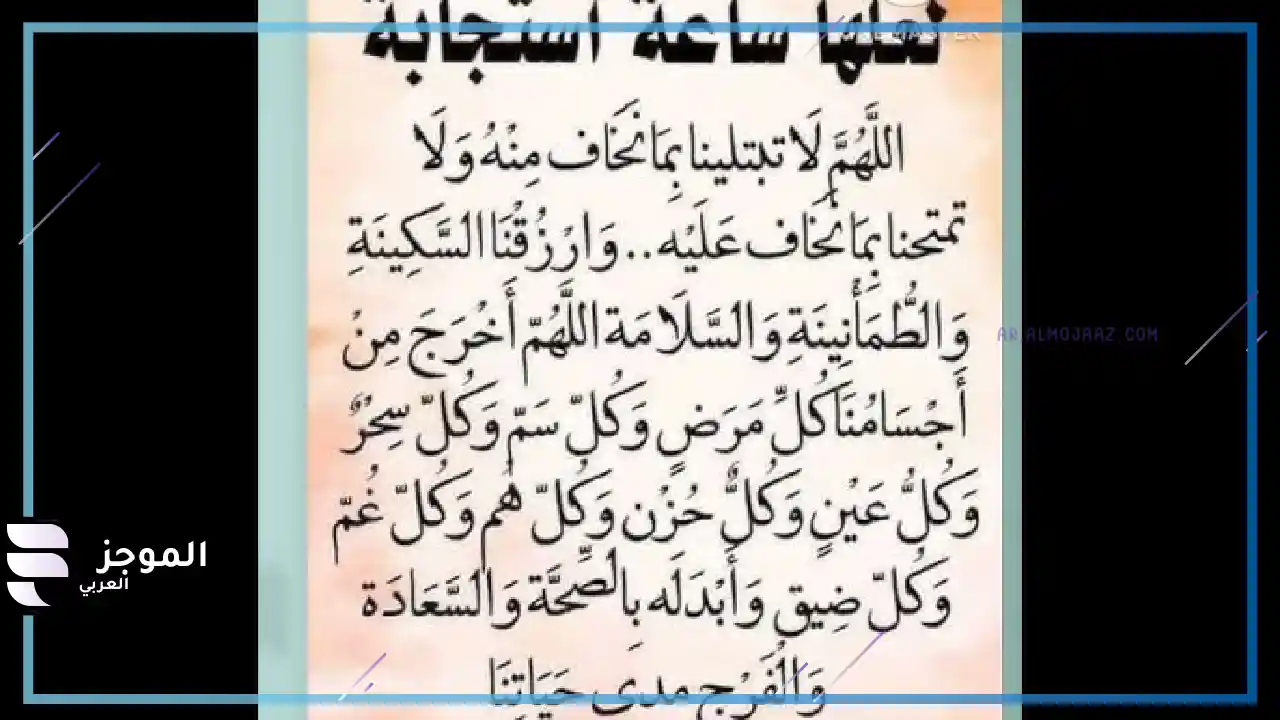 نعلها ساعة استجابة
اللَّهُمَّ لَا تبتلينا بِمَا نَخَاف مِنْهُ وَلَا
تمتحنا بِمَا نَخَاف عَلَيْه.. وَارْزُقْنَا السَّكِينَةِ
وَالطُّمَأْنِينَةِ وَالسَّلَامَة اللَّهُمّ أَخْرَجَ مِنْ
أَجْسَامُنَا كُلِّ مَرَضٍ وَكُلّ سَمّ وَكُلّ سِحْرٌ
وَكُلُّ عَيْنٍ وَكُلٌّ حُزْن وَكُلّ هُم وَكُلّ غُمّ
وَكُلّ ضِيق وَأَبْدَلَه بِالصِّحَّة وَالسَّعَادَة
وَالْفَرْج مدى حَيَاتِنَا
AR.ALMOJAAZ.COM
الموجز
العربي